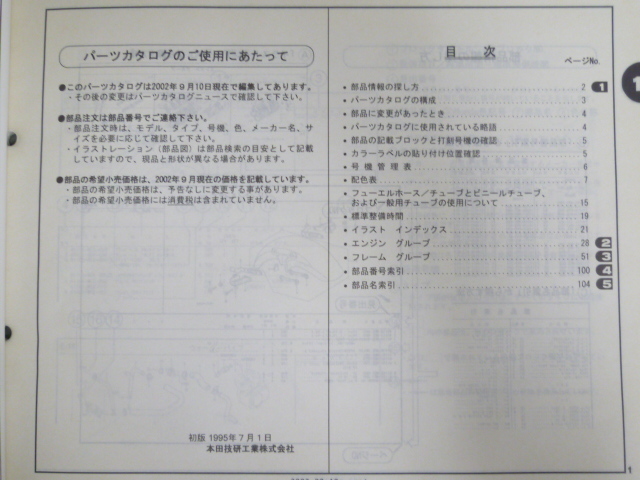 パーツカタログのご使用にあたって
●このパーツカタログは2002年9月10日現在で編集してあります。
・その後の変更はパーツカタログニュースで確認して下さい。
●部品注文は部品番号でご連絡下さい。
・部品注文時は、モデル、タイプ、号機、色、メーカー名、サ
イズを必要に応じて確認して下さい。
・イラストレーション（部品図）は部品検索の目安として記載
していますので、現品と形状が異なる場合があります。
●部品の希望小売価格は、2002年9月現在の価格を記載しています。
・部品の希望小売価格は、予告なしに変更する事があります。
・部品の希望小売価格には消費税は含まれていません。
初版 1995年7月1日
本田技研工業株式会社
目 次
ページNo.
• 部品情報の探し方 2 1
• パーツカタログの構成 3
• 部品に変更があったとき 4
• パーツカタログに使用されている略語 4
• 部品の記載ブロックと打刻号機の確認 5
• カラーラベルの貼り付け位置確認 5
• 号機管理表 6
• 配色表 7
• フューエルホース／チューブとビニールチューブ、
および一般用チューブの使用について 15
• 標準整備時間 19
• イラスト インデックス 21
• エンジン グループ 28 2
• フレーム グループ 51 3
• 部品番号索引 100 4
• 部品名索引 104 5
1
1